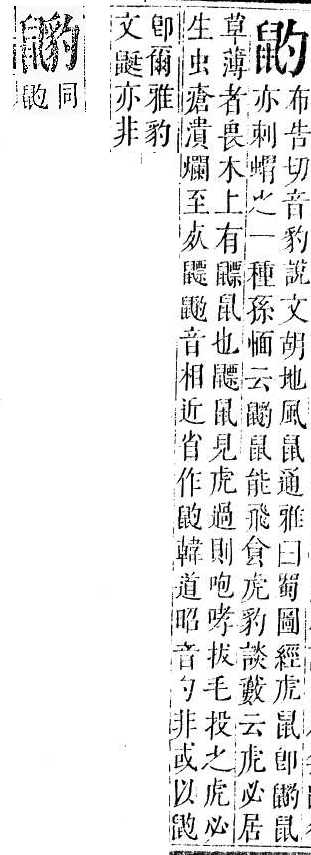 䶂
布告切音豹說文胡地風鼠通雅曰蜀圖經虎鼠卽䶂鼠
亦刺蝟之一種孫愐云䶂鼠能飛食虎豹談藪云虎必居
草薄者畏木上有鼠也鼠見虎過則咆哮拔毛投之虎必
生虫瘡潰爛至死䶂音相近省作䶂韓道昭音勺非或以䶂
卽爾雅豹
文鼮亦非
同
䶂